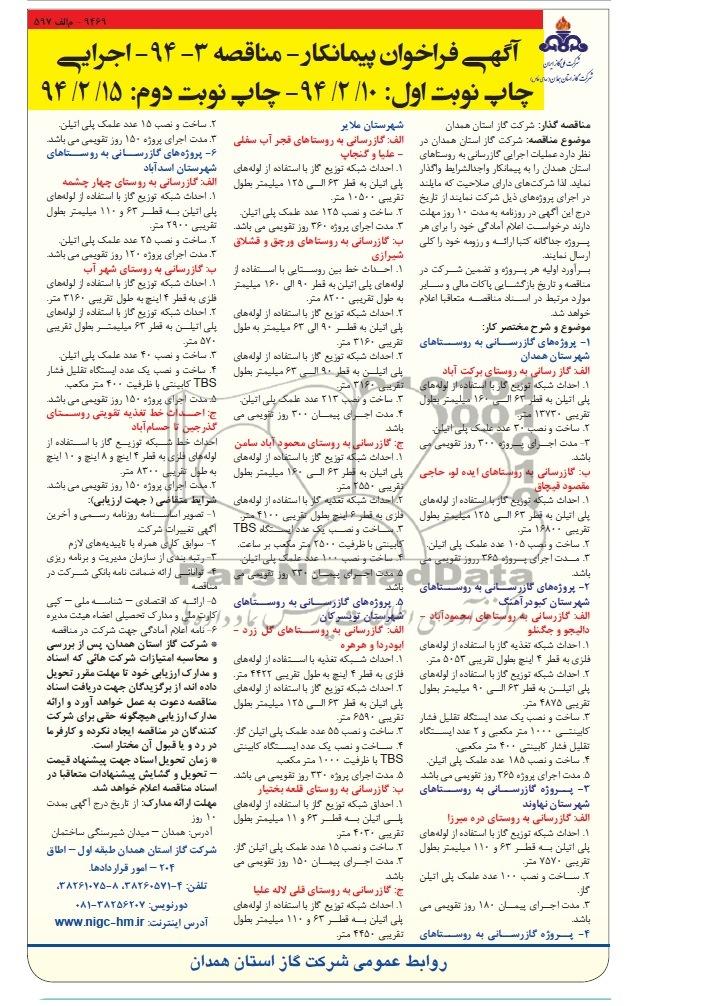 ۹۴۶۹ - م/الف ۵۹۷
آگهی فراخوان پیمانکار- مناقصه ۳- ۹۴- اجرایی
چاپ نوبت اول: ۱۰/ ۲/ ۹۴- چاپ نوبت دوم: ۱۵/ ۲/ ۹۴
شرکت ملی گاز ایران
شرکت گاز استان همدان (سهامی خاص)
مناقصه گذار: شرکت گاز استان همدان
موضوع مناقصه: شرکت گاز استان همدان در
نظر دارد عملیات اجرایی گازرسانی به روستاهای
استان همدان را به پیمانکار واجدالشرایط واگذار
نماید. لذا شرکت‌های دارای صلاحیت که مایلند
در اجرای پروژه‌های ذیل شرکت نمایند از تاریخ
درج این آگهی در روزنامه به مدت ۱۰ روز مهلت
دارند درخواست اعلام آمادگی خود را برای هر
پروژه جداگانه کتبا ارائه و رزومه خود را کلی
ارسال نمایند.
برآورد اولیه هر پروژه و تضمین شرکت در
مناقصه و تاریخ بازگشایی پاکات مالی و سایر
موارد مرتبط در اسناد مناقصه متعاقبا اعلام
خواهد شد.
موضوع و شرح مختصر کار:
۱- پروژه‌های گازرسانی به روستاهای
شهرستان همدان
الف: گاز رسانی به روستای برکت آباد
۱. احداث شبکه توزیع گاز با استفاده از لوله‌های
پلی اتیلن به قطر ۶۳ الی ۱۶۰ میلیمتر بطول
تقریبی ۱۳۷۳۰ متر.
۲. ساخت و نصب ۳۰ عدد علمک پلی اتیلن.
۳- مدت اجرای پروژه ۳۰۰ روز تقویمی می
باشد.
ب: گازرسانی به روستاهای ایده لو، حاجی
مقصود قبچاق
۱. احداث شبکه توزیع گاز با استفاده از لوله‌های
پلی اتیلن به قطر ۶۳ الی ۱۲۵ میلیمتر بطول
تقریبی ۱۶۸۰۰ متر.
۲. ساخت و نصب ۱۰۵ عدد علمک پلی اتیلن.
۳. مدت اجرای پروژه ۳۶۵ روز تقویمی می
باشد.
۲- پروژه‌های گازرسانی به روستاهای
شهرستان کبودرآهنگ
الف: گازرسانی به روستاهای محمودآباد -
دالیجو و جگنلو
۱. احداث شبکه تغذیه گاز با استفاده از لوله‌های
فلزی به قطر ۴ اینچ به طول تقریبی ۵۰۵۳ متر.
۲. احداث شبکه توزیع گاز با استفاده از لوله‌های
پلی اتیلن به قطر ۶۳ الی ۹۰ میلیمتر بطول
تقریبی ۴۸۷۵ متر.
۳. ساخت و نصب یک عدد ایستگاه تقلیل فشار
کابینتی ۱۰۰۰ متر مکعبی و ۲ عدد ایستگاه
تقلیل فشار کابینتی ۴۰۰ متر مکعبی.
۴. ساخت و نصب ۱۸۵ عدد علمک پلی اتیلن.
۵. مدت اجرای پروژه ۳۶۵ روز تقویمی می باشد.
۳- پروژه گازرسانی به روستاهای
شهرستان نهاوند
الف: گازرسانی به روستای دره میرزا
۱. احداث شبکه توزیع گاز با استفاده از لوله‌های
پلی اتیلن به قطر ۶۳ و ۱۱۰ میلیمتر بطول
تقریبی ۷۵۷۰ متر.
۲. ساخت و نصب ۱۰۰ عدد علمک پلی اتیلن
گاز.
۳. مدت اجرای پیمان ۱۸۰ روز تقویمی می
باشد.
۴- پروژه گازرسانی به روستاهای
شهرستان ملایر
الف: گازرسانی به روستاهای قجر آب سفلی
- علیا و گنجاب
۱. احداث شبکه توزیع گاز با استفاده از لوله‌های
پلی اتیلن به قطر ۶۳ الی ۱۲۵ میلیمتر بطول
تقریبی ۱۰۵۰۰ متر.
۲. ساخت و نصب ۱۲۵ عدد علمک پلی اتیلن.
۳. مدت اجرای پروژه ۳۶۰ روز تقویمی می باشد.
ب: گازرسانی به روستاهای ورچق و قشلاق
شیرازی
۱. احداث خط بین روستایی با استفاده از
لوله‌های پلی اتیلن به قطر ۹۰ الی ۱۶۰ میلیمتر
به طول تقریبی ۸۲۰۰ متر.
۲. احداث شبکه توزیع گاز با استفاده از لوله‌های
پلی اتیلن به قطر ۹۰ الی ۶۳ میلیمتر به طول
تقریبی ۳۱۶۰ متر.
۲. احداث شبکه توزیع گاز با استفاده از لوله‌های
پلی اتیلن به قطر ۹۰ الی ۶۳ میلیمتر بطول
تقریبی ۳۱۶۰ متر.
۳. ساخت و نصب ۲۱۳ عدد علمک پلی اتیلن.
۴. مدت اجرای پیمان ۳۰۰ روز تقویمی می
باشد.
ج: گازرسانی به روستای محمود آباد سامن
۱. احداث شبکه توزیع گاز با استفاده از لوله‌های
پلی اتیلن به قطر ۶۳ الی ۱۶۰ میلیمتر بطول
تقریبی ۲۵۵۰ متر.
۲. احداث شبکه تغذیه گاز با استفاده از لوله‌های
فلزی به قطر ۶ اینچ بطول تقریبی ۴۱۰۰ متر.
۳. ساخت و نصب یک عدد ایستگاه TBS
کابینتی با ظرفیت ۲۵۰۰ متر مکعب بر ساعت.
۴. ساخت و نصب ۱۰۰ عدد علمک پلی اتیلن.
۵. مدت اجرای پیمان ۳۳۰ روز تقویمی می
باشد.
۵. پروژه‌های گازرسانی به روستاهای
شهرستان تویسرکان
الف: گازرسانی به روستاهای گل زرد -
ابودردا و هرهره
۱. احداث شبکه تغذیه با استفاده از لوله‌های
فلزی به قطر ۴ اینچ به طول تقریبی ۴۴۲۲ متر.
۲. احداث شبکه توزیع گاز با استفاده از لوله‌های
پلی اتیلن به قطر ۶۳ الی ۱۲۵ میلیمتر بطول
تقریبی ۶۵۹۰ متر.
۳. ساخت و نصب ۵۵ عدد علمک پلی اتیلن گاز.
۴. ساخت و نصب یک عدد ایستگاه کابینتی
TBS با ظرفیت ۱۰۰۰ متر مکعب.
۵. مدت اجرای پروژه ۳۳۰ روز تقویمی می باشد.
ب: گازرسانی به روستای قلعه بختیار
۱. احداق شبکه توزیع گاز با استفاده از لوله‌های
پلی اتیلن به قطر ۶۳ و ۱۱ میلیمتر بطول
تقریبی ۴۰۳۰ متر.
۲. ساخت و نصب ۱۵ عدد علمک پلی اتیلن گاز.
۳. مدت اجرای پیمان ۱۵۰ روز تقویمی می
باشد.
ج: گازرسانی به روستای قلی لاله علیا
۱. احداث شبکه توزیع گاز با استفاده از لوله‌های
پلی اتیلن به قطر ۶۳ و ۱۱۰ میلیمتر بطول
تقریبی ۴۴۵۰ متر.
۲. ساخت و نصب ۱۵ عدد علمک پلی اتیلن.
۳. مدت اجرای پروژه ۱۵۰ روز تقویمی می باشد.
۶- پروژه‌های گازرسانی به روستاهای
شهرستان اسدآباد
الف: گازرسانی به روستای چهار چشمه
۱. احداث شبکه توزیع گاز با استفاده از لوله‌های
پلی اتیلن به قطر ۶۳ و ۱۱۰ میلیمتر بطول
تقریبی ۲۹۰۰ متر.
۲. ساخت و نصب ۲۵ عدد علمک پلی اتیلن.
۳. مدت اجرای پروژه ۱۲۰ روز تقویمی می باشد.
ب: گازرسانی به روستای شهر آب
۱. احداث شبکه توزیع گاز با استفاده از لوله‌های
فلزی به قطر ۴ اینچ به طول تقریبی ۳۱۶۰ متر.
۲. احداث شبکه توزیع گاز با استفاده از لوله‌های
پلی اتیلن به قطر ۶۳ میلیمتر بطول تقریبی
۵۷۰ متر.
۳. ساخت و نصب ۴۰ عدد علمک پلی اتیلن.
۴. ساخت و نصب یک عدد ایستگاه تقلیل فشار
TBS کابینتی با ظرفیت ۴۰۰ متر مکعب.
۵. مدت اجرای پروژه ۱۵۰ روز تقویمی می باشد.
ج: احداث خط تغذیه تقویتی روستای
گذرجین تا حسام‌آباد
احداث خط شبکه توزیع گاز با استفاده از
لوله‌های فلزی به قطر ۴ اینچ و ۸ اینچ و ۱۰ اینچ
به طول تقریبی ۸۳۰۰ متر.
۲. مدت اجرای پروژه ۱۵۰ روز تقویمی می باشد.
شرایط متقاضی ( جهت ارزیابی):
۱- تصویر اساسنامه روزنامه رسمی و آخرین
آگهی تغییرات شرکت.
۲- سوابق کاری همراه با تاییدیه‌های لازم
۳- رتبه بندی از سازمان مدیریت و برنامه ریزی
۴- توانائی ارائه ضمانت نامه بانکی شرکت در
مناقصه
۵- ارائه کد اقتصادی – شناسه ملی – کپی
کارت ملی و مدارک تحصیلی اعضاء هیئت مدیره
۶- نامه اعلام آمادگی جهت شرکت در مناقصه
* شرکت گاز استان همدان، پس از بررسی
و محاسبه امتیازات شرکت هائی که اسناد
و مدارک ارزیابی خود تا مهلت مقرر تحویل
داده اند، از برگزیدگان جهت دریافت اسناد
مناقصه دعوت به عمل خواهد آورد و ارائه
مدارک ارزیابی هیچگونه حقی برای شرکت
کنندگان در مناقصه ایجاد نکرده و کارفرما
در رد و یا قبول آن مختار است.
* زمان تحویل اسناد جهت پیشنهاد قیمت
– تحویل و گشایش پیشنهادات متعاقبا در
اسناد مناقصه اعلام خواهد شد.
مهلت ارائه مدارک: از تاریخ درج آگهی بمدت
۱۰ روز
آدرس: همدان – میدان شیرسنگی ساختمان
شرکت گاز استان همدان طبقه اول – اطاق
۲۰۴ – امور قراردادها.
تلفن: ۴-۳۸۲۶۰۵۷۱، ۸-۳۸۲۶۱۰۷۵
دورنویس: ۳۸۲۵۶۲۰۷-۰۸۱
آدرس اینترنت: www.nigc-hm.ir
روابط عمومی شرکت گاز استان همدان
ParsNamadData